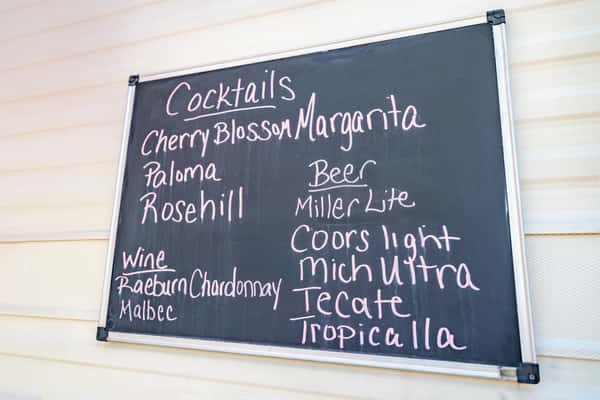 Cocktails
Cherry Blossom Margarita
Paloma
Rosehill
Wine
Raeburn Chardonnay
Malbec
Beer
Miller Lite
Coors light
Mich Ultra
Tecate
Tropicalla